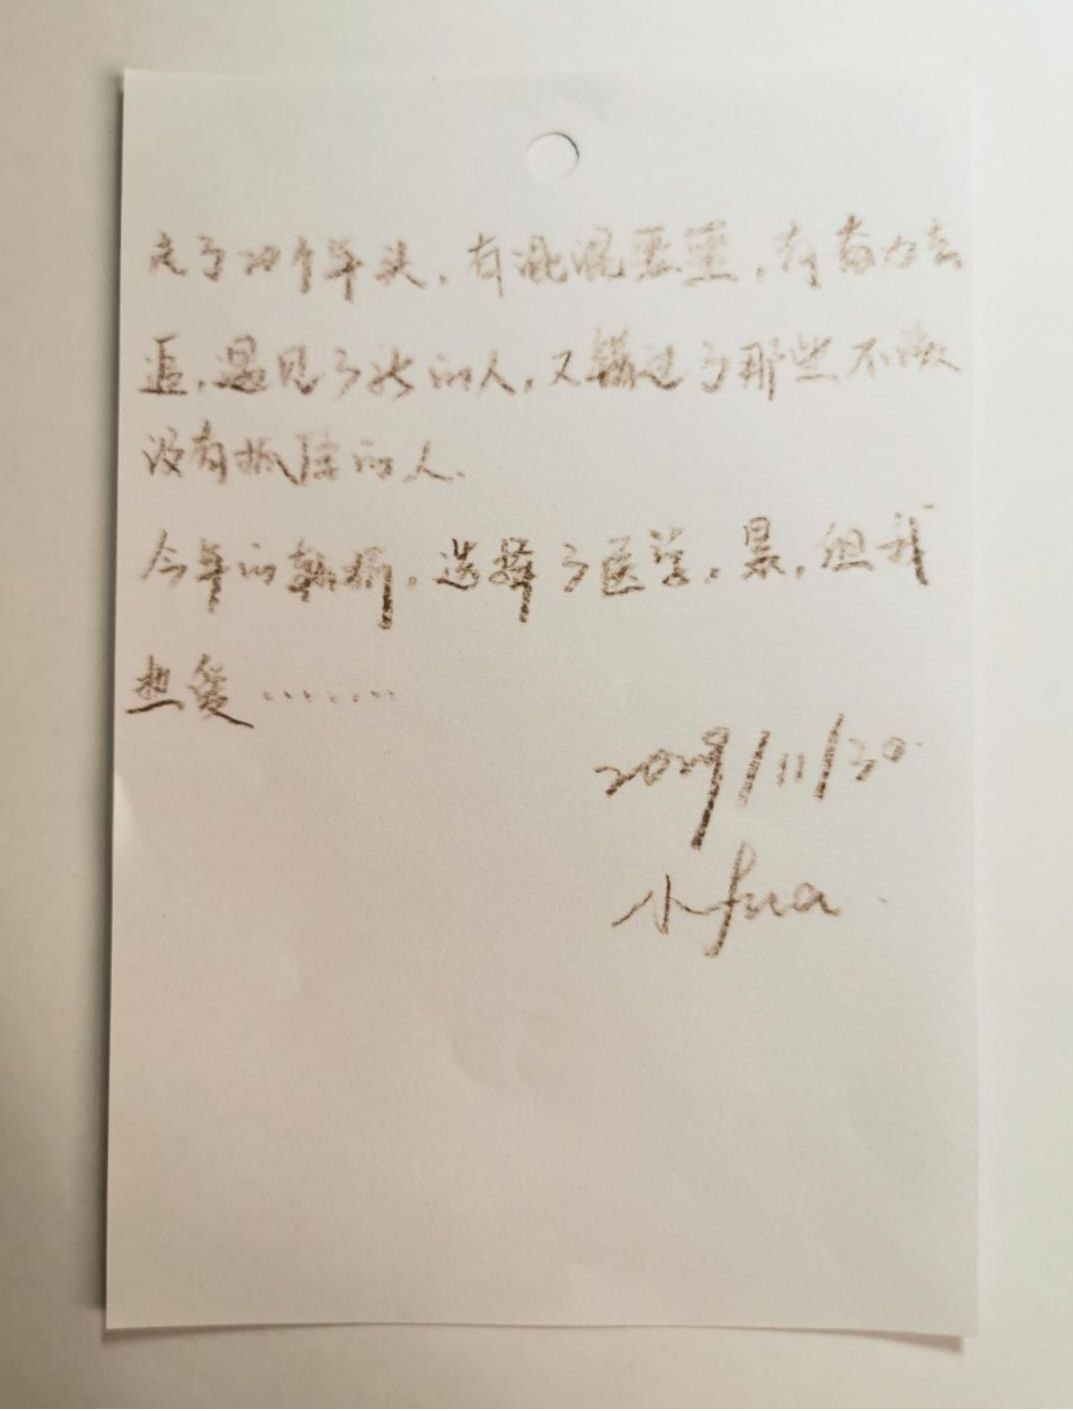 走了20个年头，有混混噩噩，有奋力去
追，遇见了的人，又错过了那些不
没有抓住的人.
今年的转折，选择了医学，累，但我
热爱………
2029/11/30
小fua